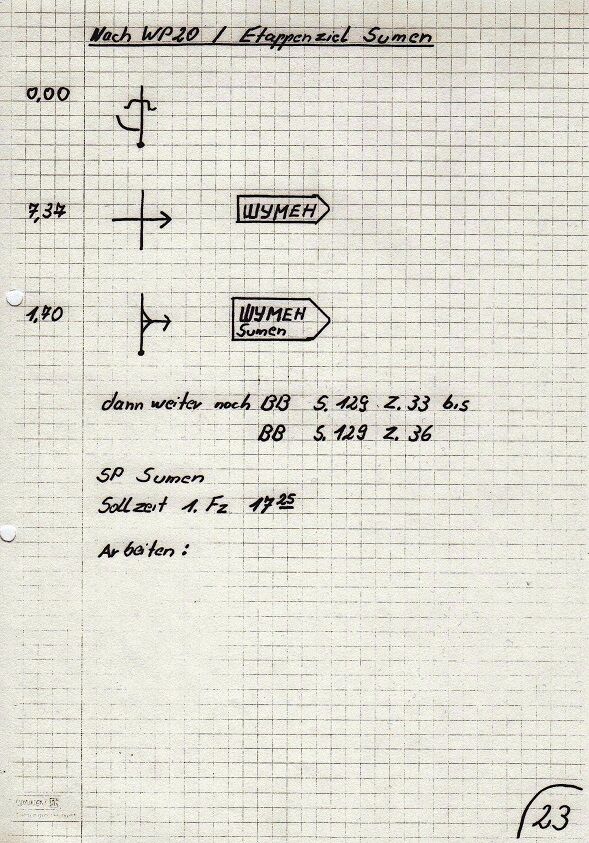 Nach WP20 / Etappenziel Sumen
0,00
7,37 ШУМЕН
1,70 ШУМЕН
Sumen
dann weiter nach BB S. 129 Z. 33 bis
BB S. 129 Z. 36
SP Sumen
Sollzeit 1. Fz 17 25
Arbeiten:
23